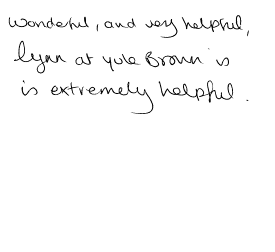 Wonderful, and very helpful,
lynn at yule Brown is
is extremely helpful.